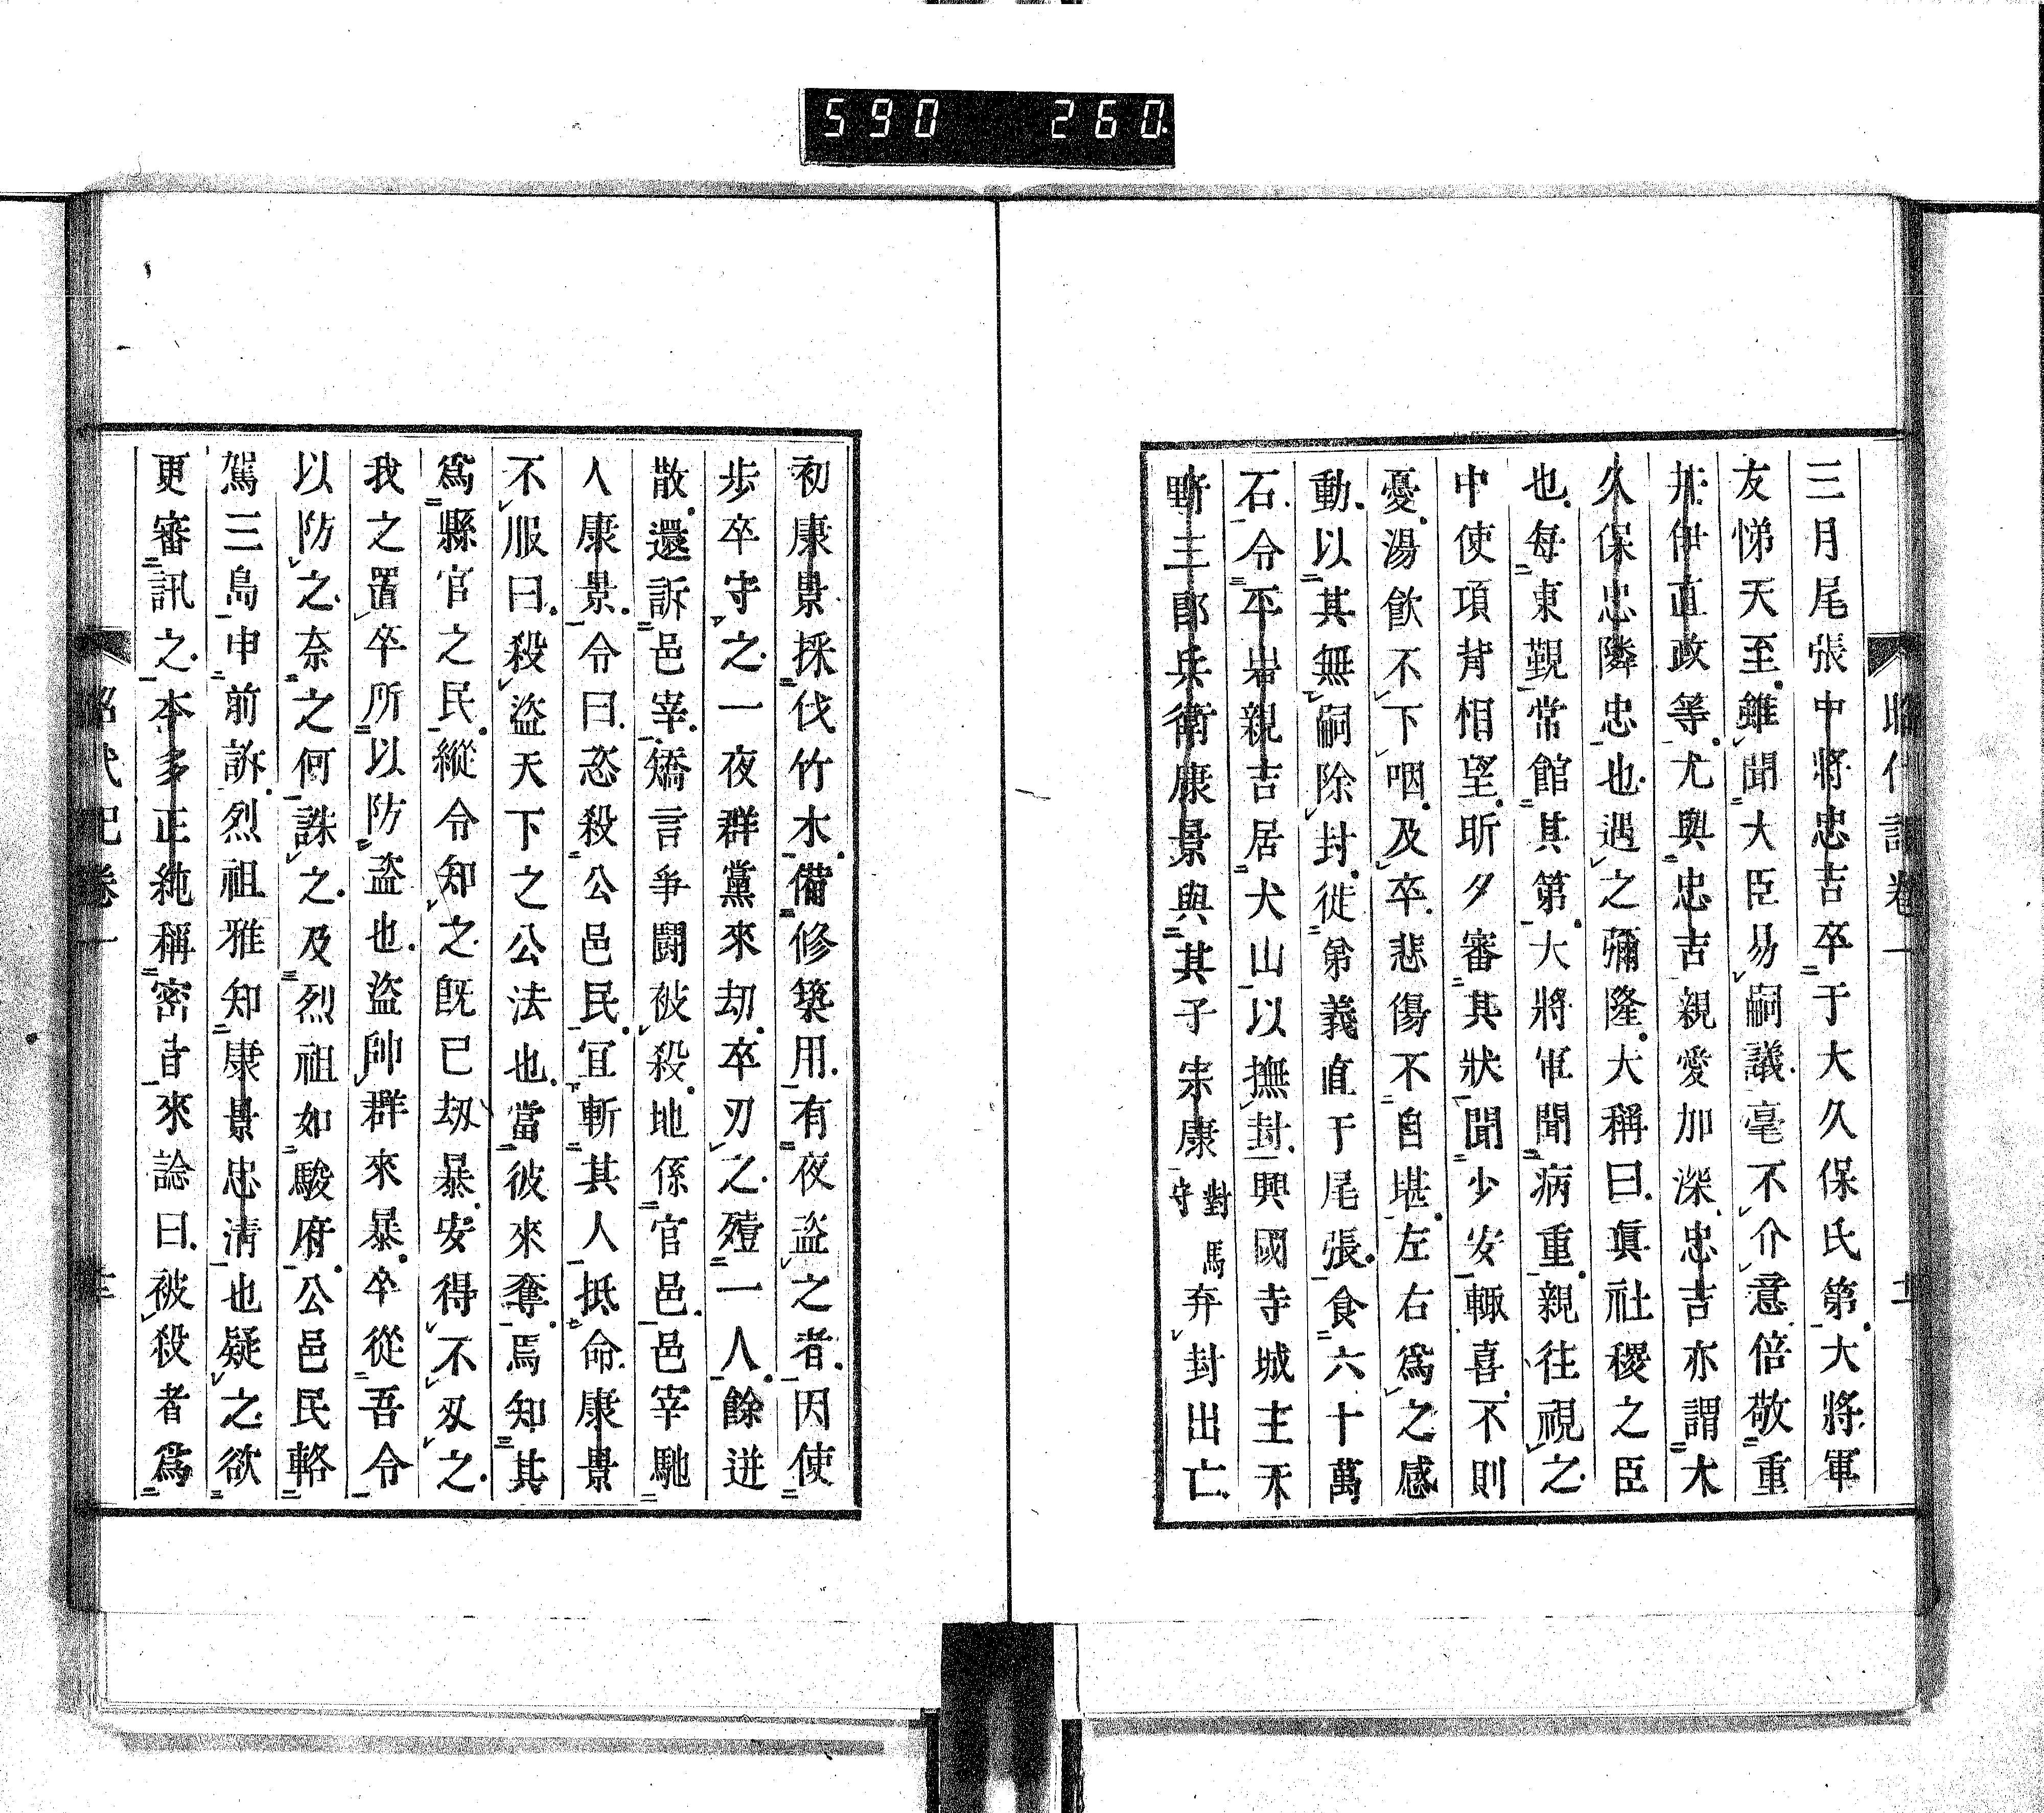 590 260
昭代記卷一
三月尾張中將忠吉卒于大久保氏第大將軍
友悌天至雖聞大臣易嗣議毫不介意倍敬重
井伊直政等尤與忠吉親愛加深忠吉亦謂大
久保忠隣忠也遇之彌隆大稱曰眞社稷之臣
也每東覲常館其第大將軍聞病重親往視之
中使項背相望昕夕審其狀聞少安輙喜不則
憂湯飮不下咽及卒悲傷不自堪左右爲之感
動以其無嗣除封徙弟義直于尾張食六十萬
石令平岩親吉居犬山以撫封興國寺城主天
野三郎兵衛康景與其子宗康對馬守弃封出亡
初康景採伐竹木備修築用有夜盜之者因使
步卒守之一夜群黨來刧卒刃之殪一人餘迸
散還訴邑宰矯言爭鬪被殺地係官邑邑宰馳
人康景令曰恣殺公邑民宜斬其人抵命康景
不服曰殺盜天下之公法也當彼來奪焉知其
爲縣官之民縱令知之旣已刼暴安得不刄之
我之置卒所以防盜也盜帥群來暴卒從吾令
以防之奈之何誅之及烈祖如駿府公邑民輅
駕三島申前訴烈祖雅知康景忠淸也疑之欲
更審訊之本多正純稱密旨來諗曰被殺者爲
昭代記卷一